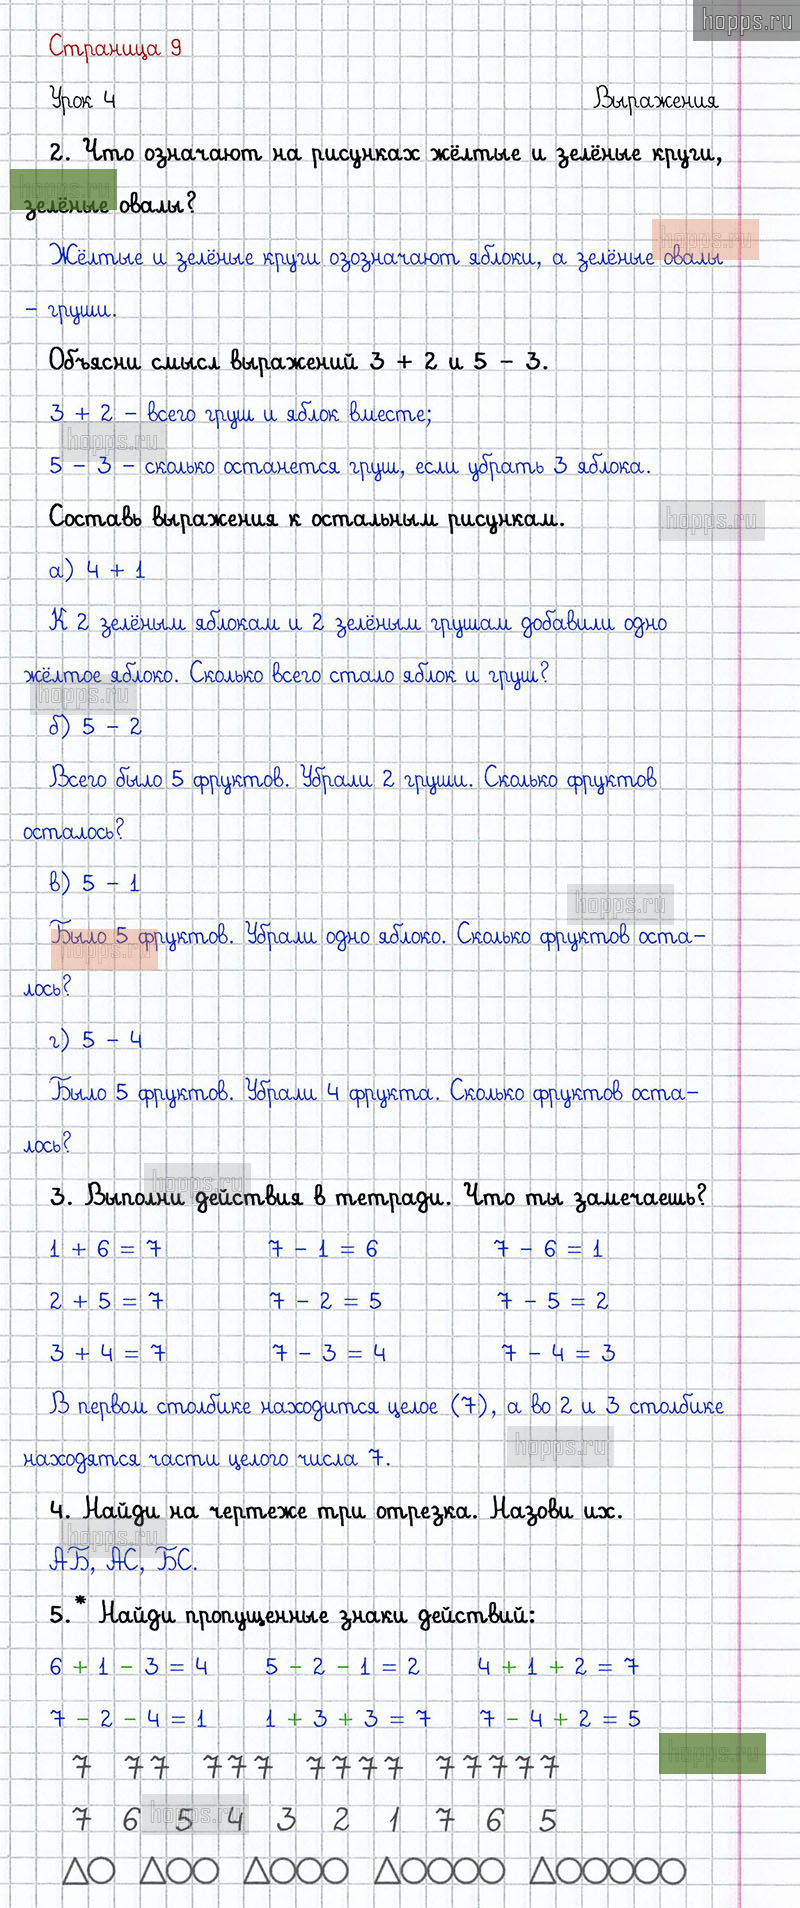 hopps.ru
Страница 9
Урок 4 Выражения
2. Что означают на рисунках жёлтые и зелёные круги,
hopps.ru
зелёные овалы?
hopps.ru
Жёлтые и зелёные круги озозначают яблоки, а зелёные овалы
– груши.
Объясни смысл выражений 3 + 2 и 5 – 3.
3 + 2 – всего груш и яблок вместе;
hopps.ru
5 – 3 – сколько останется груш, если убрать 3 яблока.
Составь выражения к остальным рисункам.
hopps.ru
а) 4 + 1
К 2 зелёным яблокам и 2 зелёным грушам добавили одно
жёлтое яблоко. Сколько всего стало яблок и груш?
hopps.ru
б) 5 – 2
Всего было 5 фруктов. Убрали 2 груши. Сколько фруктов
осталось?
в) 5 – 1
hopps.ru
Было 5 фруктов. Убрали одно яблоко. Сколько фруктов оста–
hopps.ru
лось?
г) 5 – 4
Было 5 фруктов. Убрали 4 фрукта. Сколько фруктов оста–
лось?
hopps.ru
3. Выполни действия в тетради. Что ты замечаешь?
1 + 6 = 7 7 – 1 = 6 7 – 6 = 1
2 + 5 = 7 7 – 2 = 5 7 – 5 = 2
3 + 4 = 7 7 – 3 = 4 7 – 4 = 3
В первом столбике находится целое (7), а во 2 и 3 столбике
hopps.ru
находятся части целого числа 7.
4. Найди на чертеже три отрезка. Назови их.
hopps.ru
АБ, АС, БС.
5.* Найди пропущенные знаки действий:
6 + 1 – 3 = 4 5 – 2 – 1 = 2 4 + 1 + 2 = 7
7 – 2 – 4 = 1 1 + 3 + 3 = 7 7 – 4 + 2 = 5
hopps.ru
7 77 777 7777 77777
7 6 5 4 3 2 1 7 6 5
hopps.ru